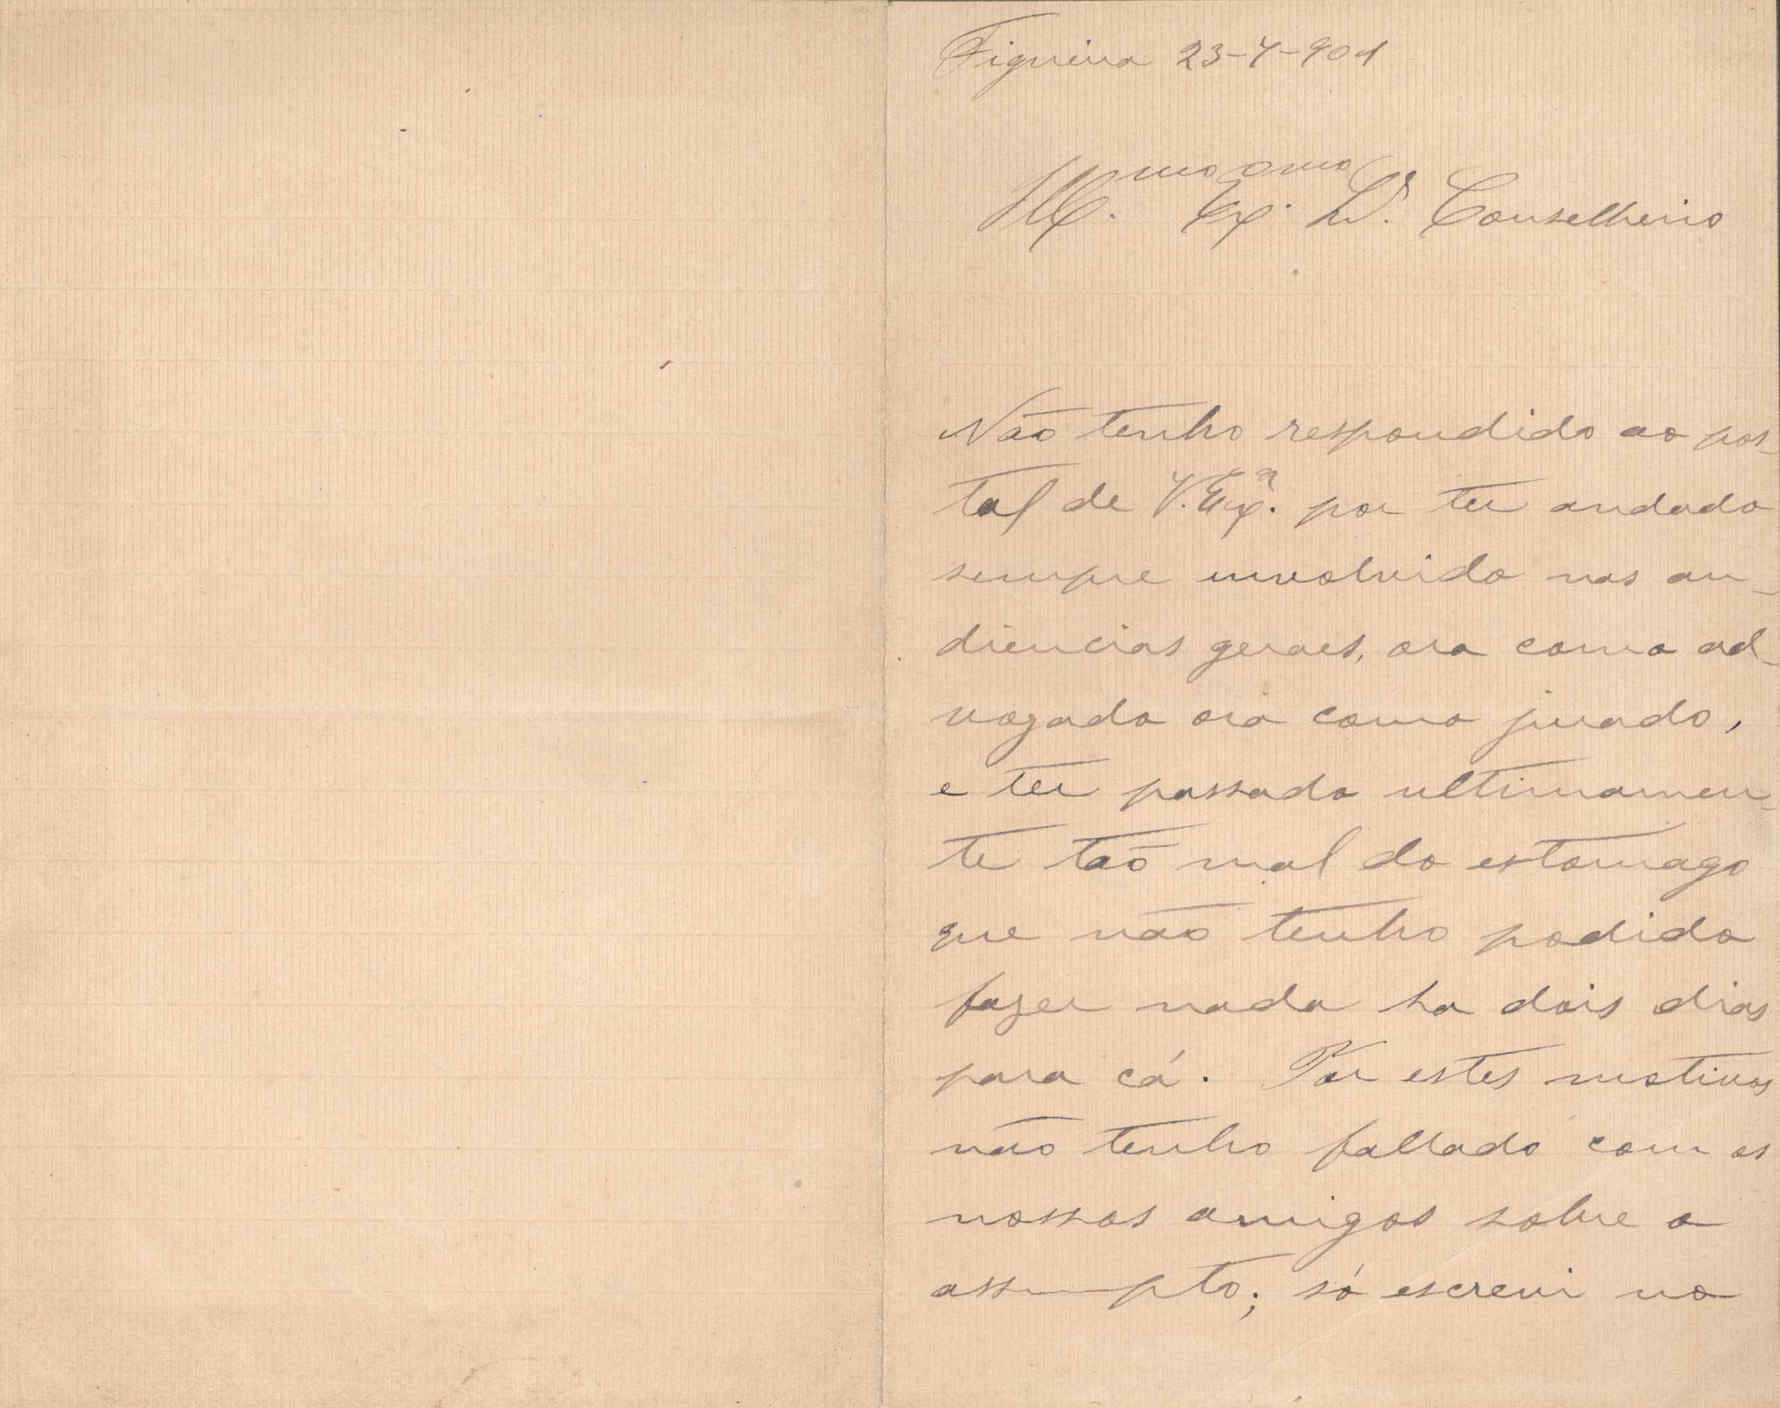 Figueira 23-7-901
Ill.mo Ex.mo Sr. Conselheiro
Não tenho respondido ao pos-
tal de V. Ex.ª por ter andado
sempre involvido nas au-
diencias geraes, ora como ad-
vogado ora como jurado,
e ter passado ultimamen-
te tão mal do estomago
que não tenho podido
fazer nada ha dois dias
para cá. Por estes motivos
não tenho fallado com os
nossos amigos sobre o
assumpto; só escrevi no